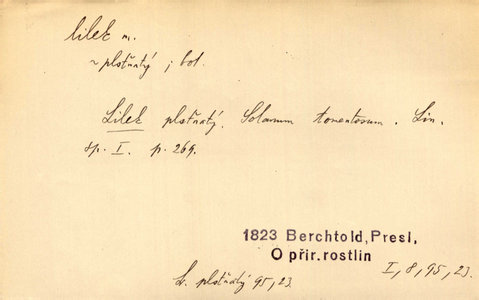 lilek m.
~ plstnatý ; bot.
Lilek plstnatý. Solanum tomentosum. Lin.
sp. I. p. 269.
1823 Berchtold, Presl,
O přir. rostlin
I, 8, 95, 23.
L. plstnatý 95, 23